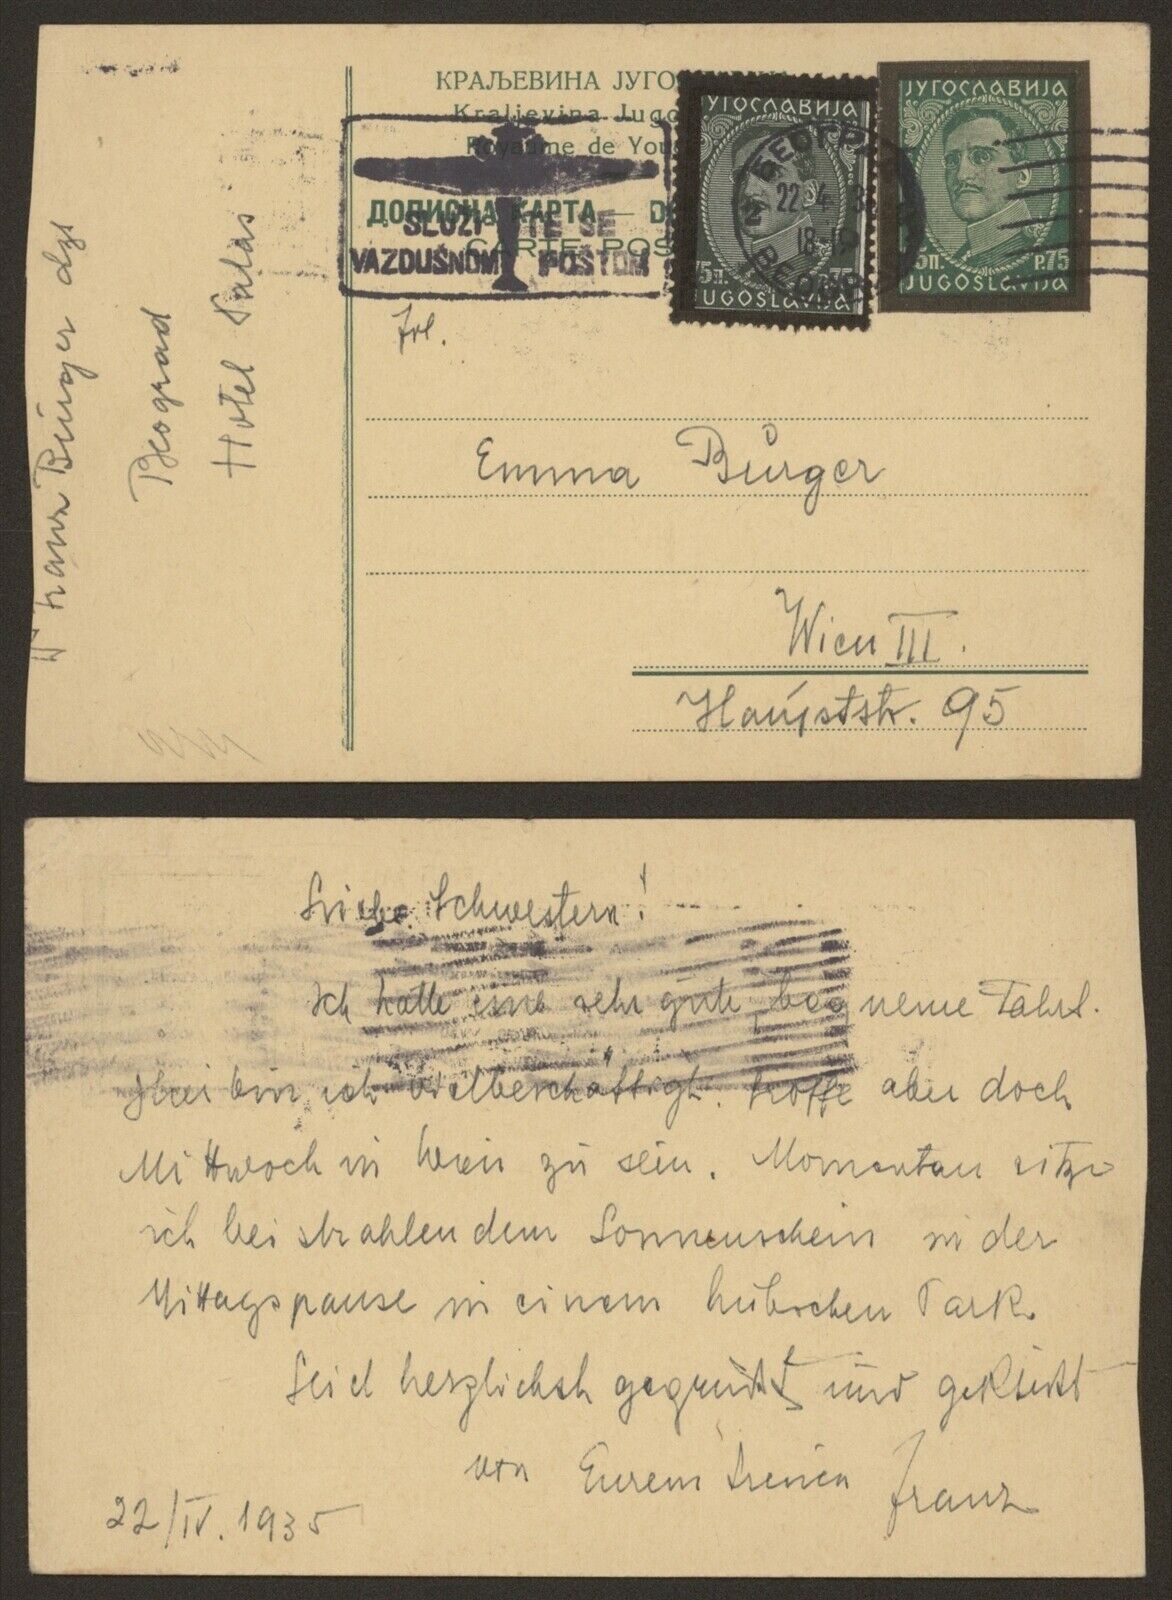 КРАЉЕВИНА ЈУГОСЛАВИЈА
Kraljevina Jugo
Royaume de You
ДОПИСНА КАРТА — D
CARTE POS
SLUŽITE SE
VAZDUŠNOM POŠTOM
ЈУГОСЛАВИЈА
75п. P.75
JUGOSLAVIJA
БЕОГРАД
22.4 3
18-19
BEOGR
ЈУГОСЛАВИЈА
75п. P.75
JUGOSLAVIJA
Franz Bürger dzt
Beograd
Hotel Palas
Frl.
Emma Bürger
Wien III.
Hauptstr. 95
Liebe Schwestern!
Ich hatte eine sehr gute, bequeme Fahrt.
Hier bin ich vielbeschäftigt, hoffe aber doch
Mittwoch in Wien zu sein. Momentan sitze
ich bei strahlendem Sonnenschein in der
Mittagspause in einem hübschen Park.
Seid herzlichst gegrüsst und geküsst
von Eurem treuen Franz
22/IV. 1935